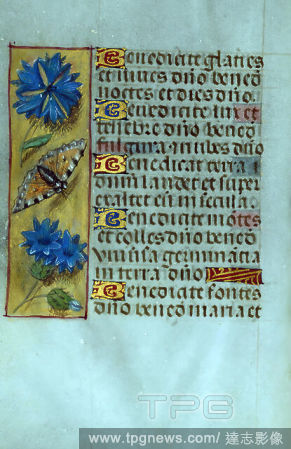 Benedicite glacies
et nives dño bened
noctes et dies dño.
Benedicite lux et
tenebre dño bened
fulgura nubes dño
Benedicat terra
dñm laudet et super
exaltet eũ in secula.
Benedicite mõtes
et colles dño bened
germinãtia
in terra dño
Benedicite fontes
dño bened maria et
TPG
www.tpgnews.com/ 達志影像